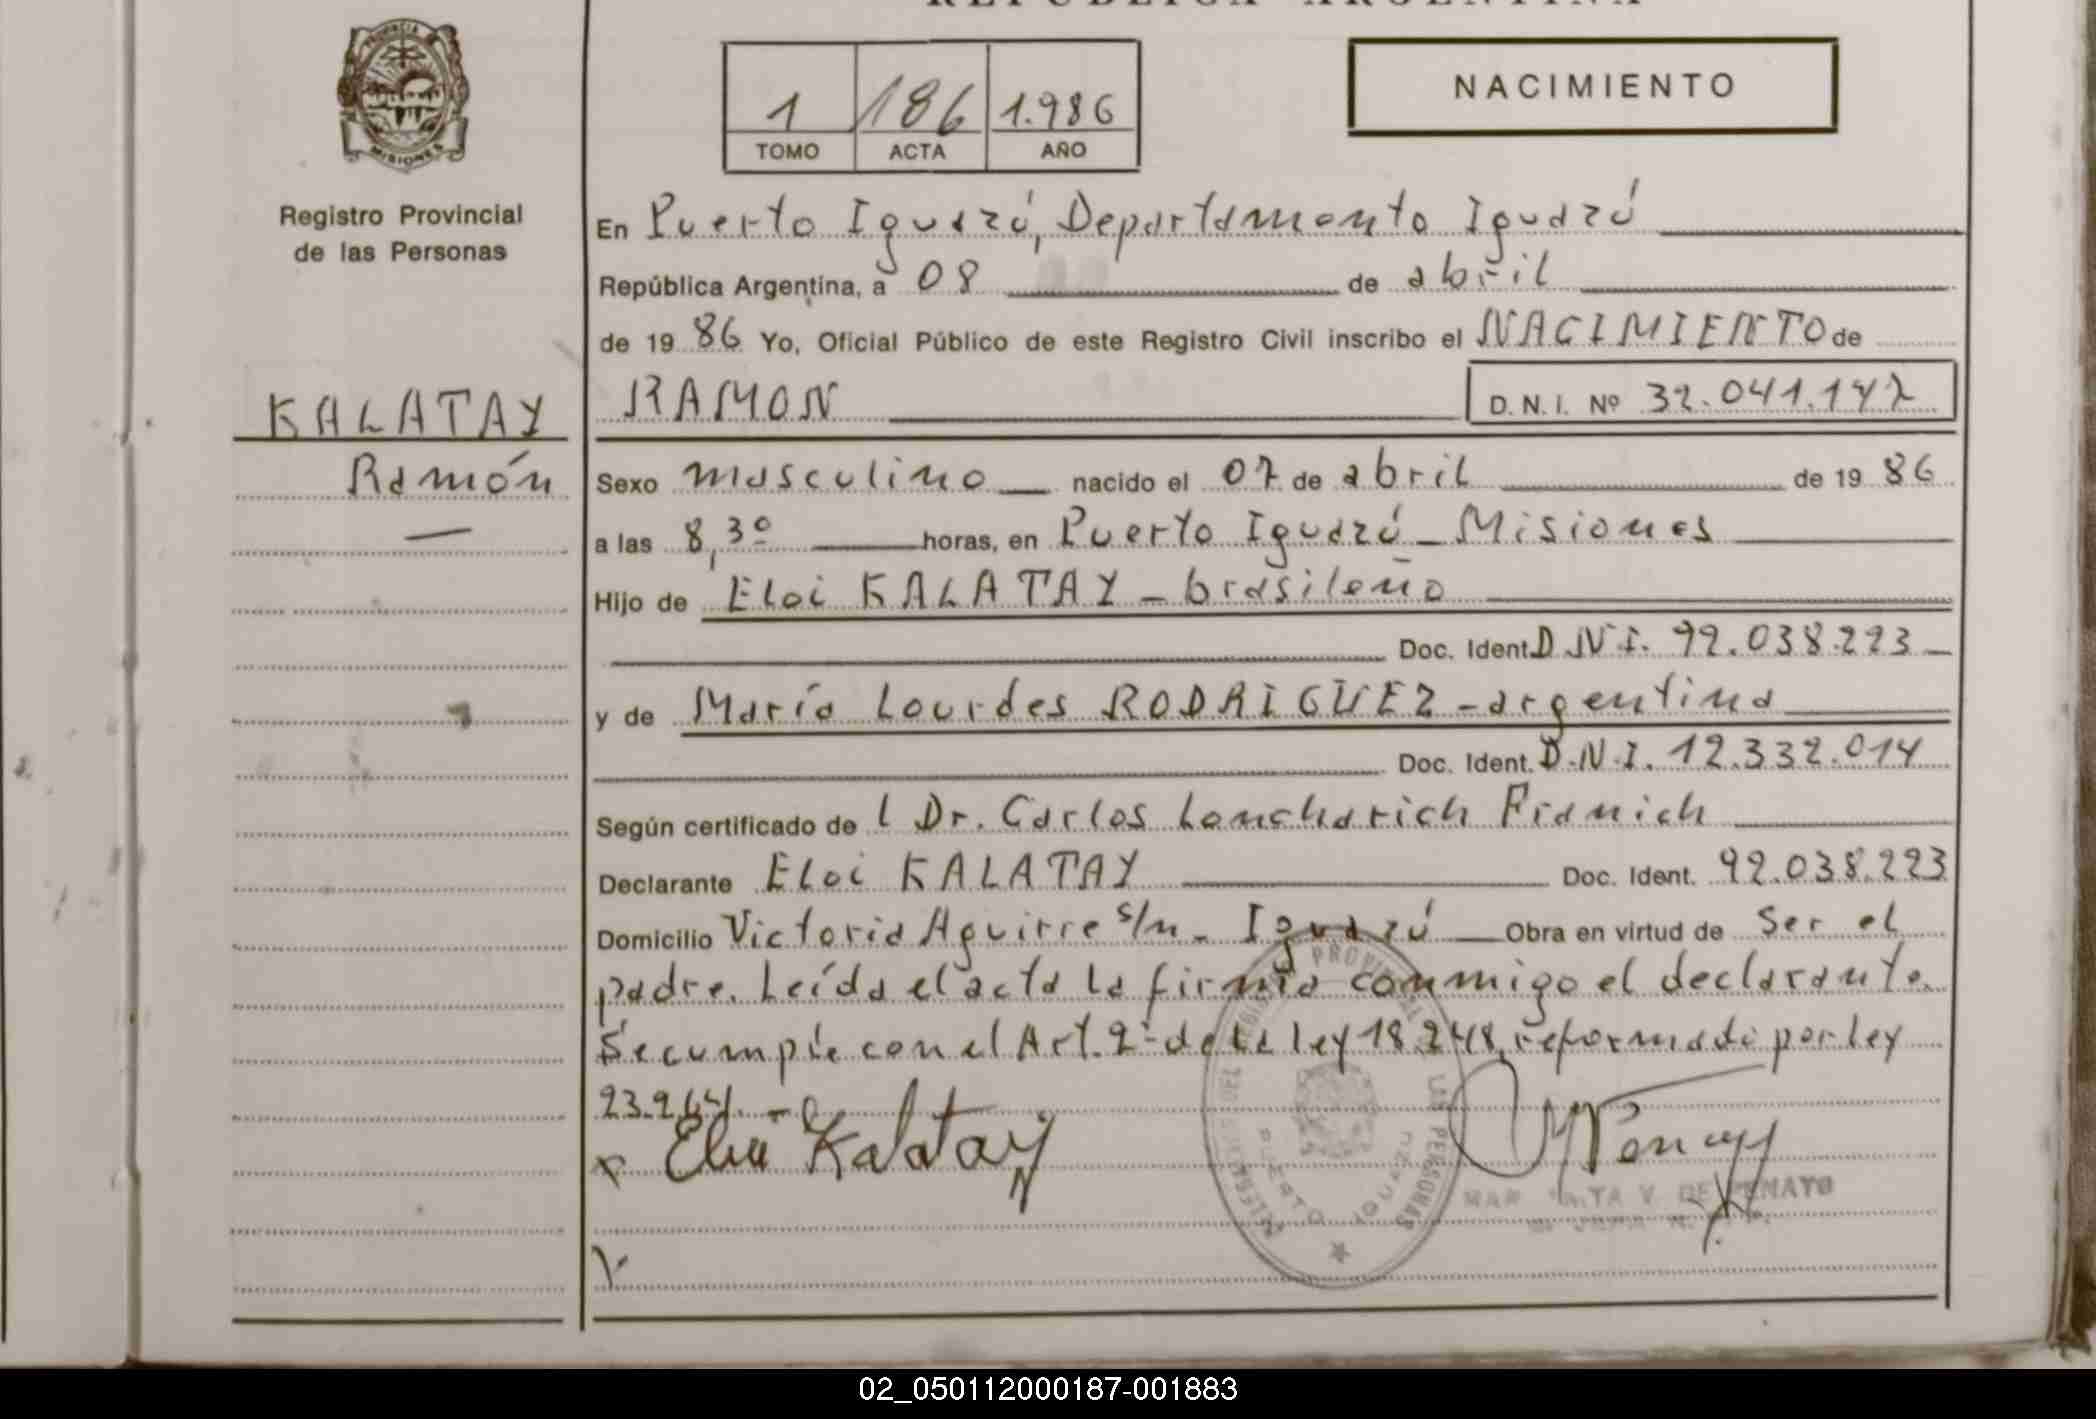 REPUBLICA ARGENTINA
PROVINCIA DE MISIONES
Registro Provincial
de las Personas
1 186 1.986
TOMO ACTA AÑO
NACIMIENTO
En Puerto Iguazú, Departamento Iguazú
República Argentina, a 08 de abril
de 19 86 Yo, Oficial Público de este Registro Civil inscribo el NACIMIENTO de
KALATAY
RAMON D. N. I. Nº 32.041.147
Ramón
Sexo masculino nacido el 07 de abril de 19 86
a las 8,30 horas, en Puerto Iguazú - Misiones
Hijo de Eloi KALATAY - brasileño
Doc. Ident. D.N.I. 92.038.223
y de María Lourdes RODRIGUEZ - argentina
Doc. Ident. D.N.I. 12.332.014
Según certificado de l Dr. Carlos Loncharich Franich
Declarante Eloi KALATAY Doc. Ident. 92.038.223
Domicilio Victoria Aguirre s/n - Iguazú Obra en virtud de Ser el
padre. Leída el acta la firma conmigo el declarante.
Se cumple con el Art. 2º de la ley 18.248, reformado por ley
23.264. -
Eloi Kalatay
PUERTO IGUAZU
V. DE PENAYO
02_050112000187-001883